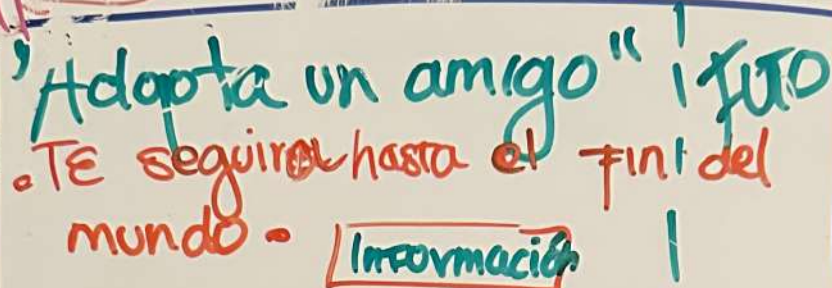 "Adopta un amigo"
.TE seguira hasta el Fin del
mundo.
Información